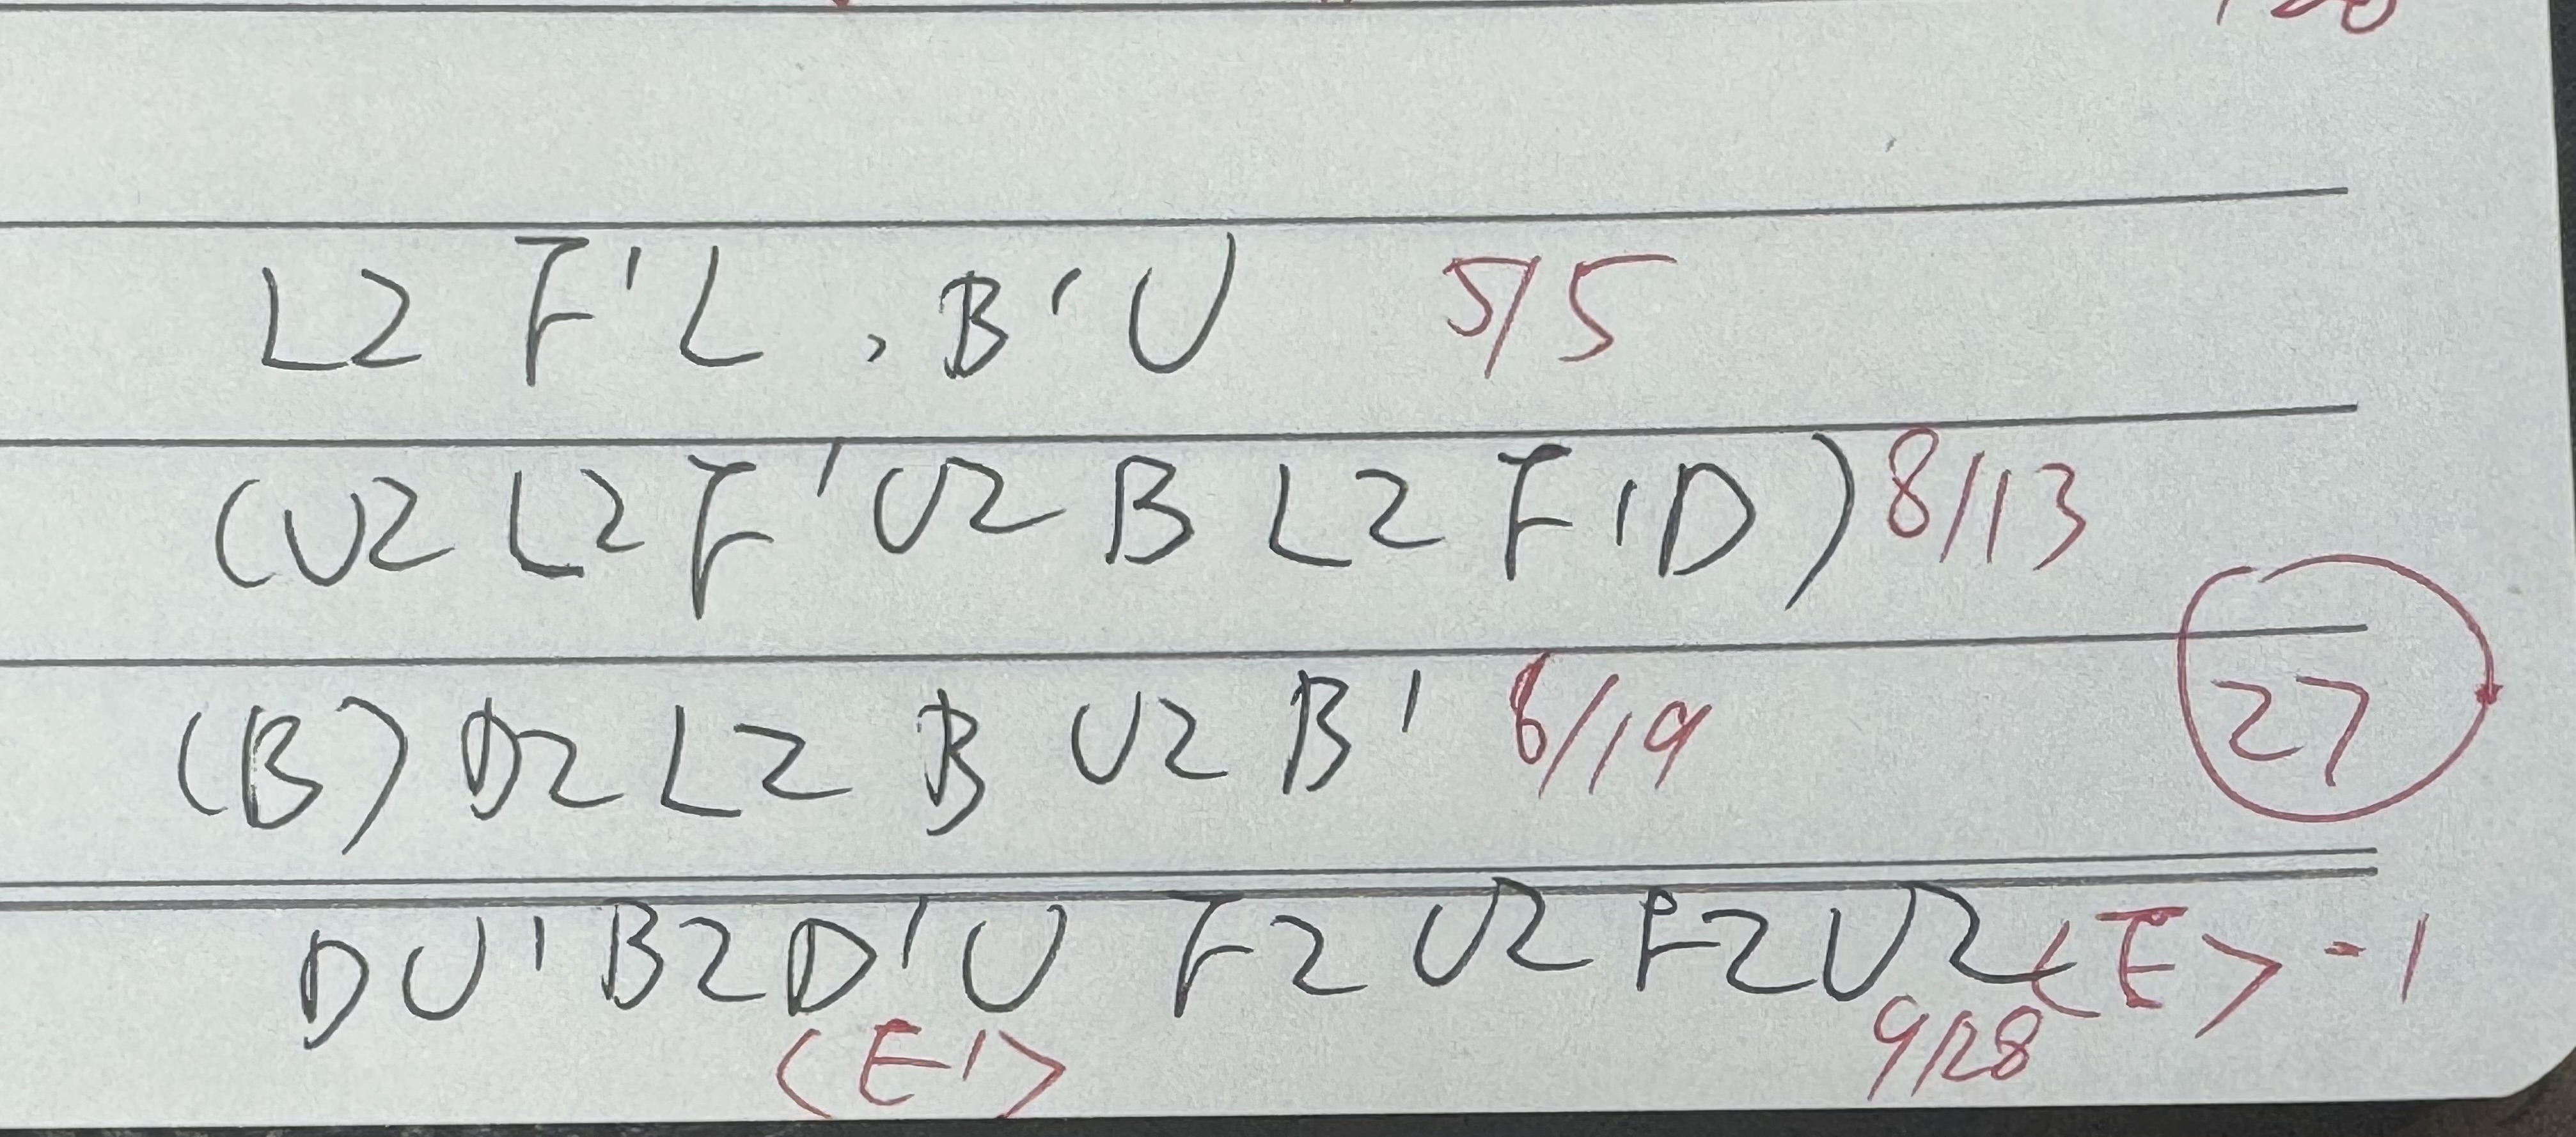 L2 F'L , B'U 5/5
(U2 L2 F' U2 B L2 F'D) 8/13
(B) D2 L2 B U2 B' 6/19
27
DU'B2D'U F2 U2 F2U2 <E> -1
<E'> 9/28